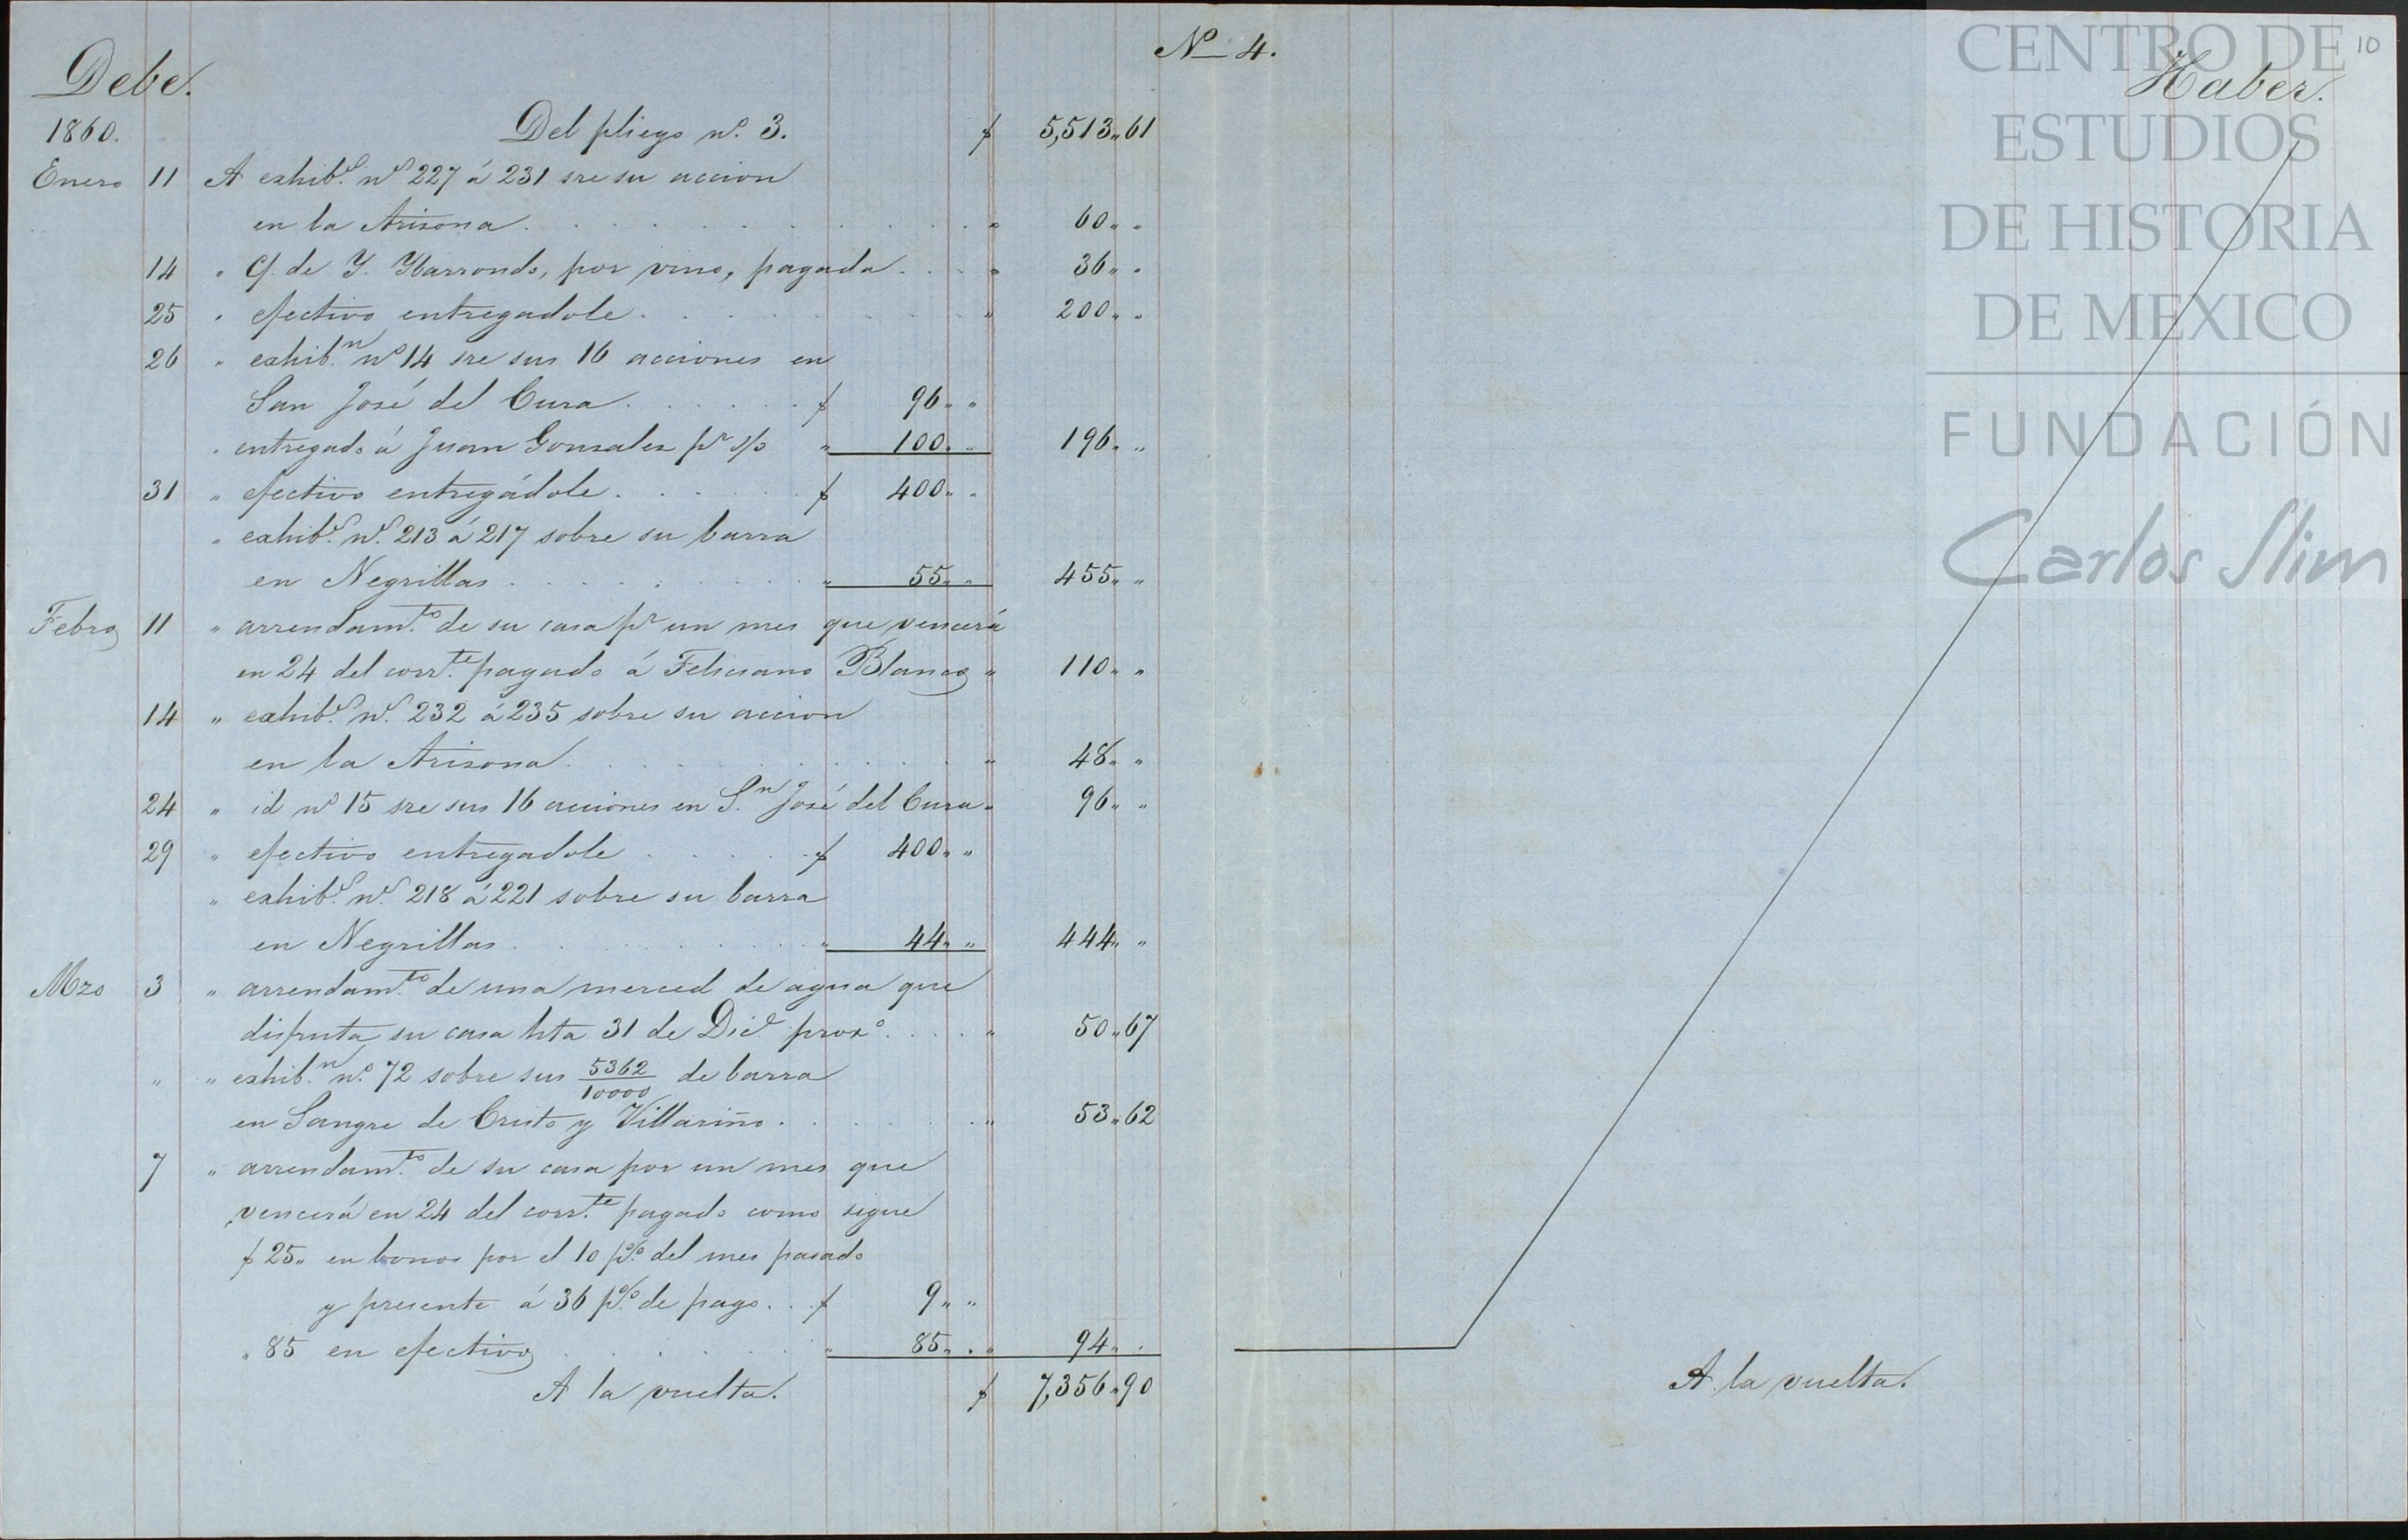 Nº 4.
10
Debe.
Haber.
1860.
Del pliego nº. 3. $ 5,513„61
Enero 11 A exhibs. ns. 227 á 231 sre su accion
en la Arizona . . . „ 60„ „
14 „ C/. de Y. Ybarrondo, por vino, pagada . . . „ 36„ „
25 „ efectivo entregadole . . . „ 200„ „
26 „ exhib.n nº 14 sre sus 16 acciones en
San José del Cura . . . $ 96„ „
„ entregado á Juan Gonzalez pr s/o „ 100„ „ 196„ „
31 „ efectivo entregádole . . . $ 400„ „
„ exhibs. ns. 213 á 217 sobre su barra
en Negrillas . . . „ 55„ „ 455„ „
Febro 11 „ arrendam.to de su casa pr un mes que vencerá
en 24 del corr.te pagado á Feliciano Blanco „ 110„ „
14 „ exhibs. ns. 232 á 235 sobre su accion
en la Arizona . . . „ 48„ „
24 „ id nº 15 sre sus 16 acciones en S.n José del Cura „ 96„ „
29 „ efectivo entregadole . . . $ 400„ „
„ exhibs. ns. 218 á 221 sobre su barra
en Negrillas . . . „ 44„ „ 444„ „
Mzo 3 „ arrendam.to de una merced de agua que
disfruta su casa hta 31 de Dice. proxo. . . . „ 50„67
„ „ exhib.n nº. 72 sobre sus 5362/10000 de barra
en Sangre de Cristo y Villariño . . . „ 53„62
7 „ arrendam.to de su casa por un mes que
vencerá en 24 del corr.te pagado como sigue
$ 25„ en bonos por el 10 p%. del mes pasado
y presente á 36 p%. de pago . . . $ 9„ „
„ 85 en efectivo . . . „ 85„ „ „ 94„ „
A la vuelta. $ 7,356„90
A la vuelta.
CENTRO DE
ESTUDIOS
DE HISTORIA
DE MEXICO
FUNDACIÓN
Carlos Slim